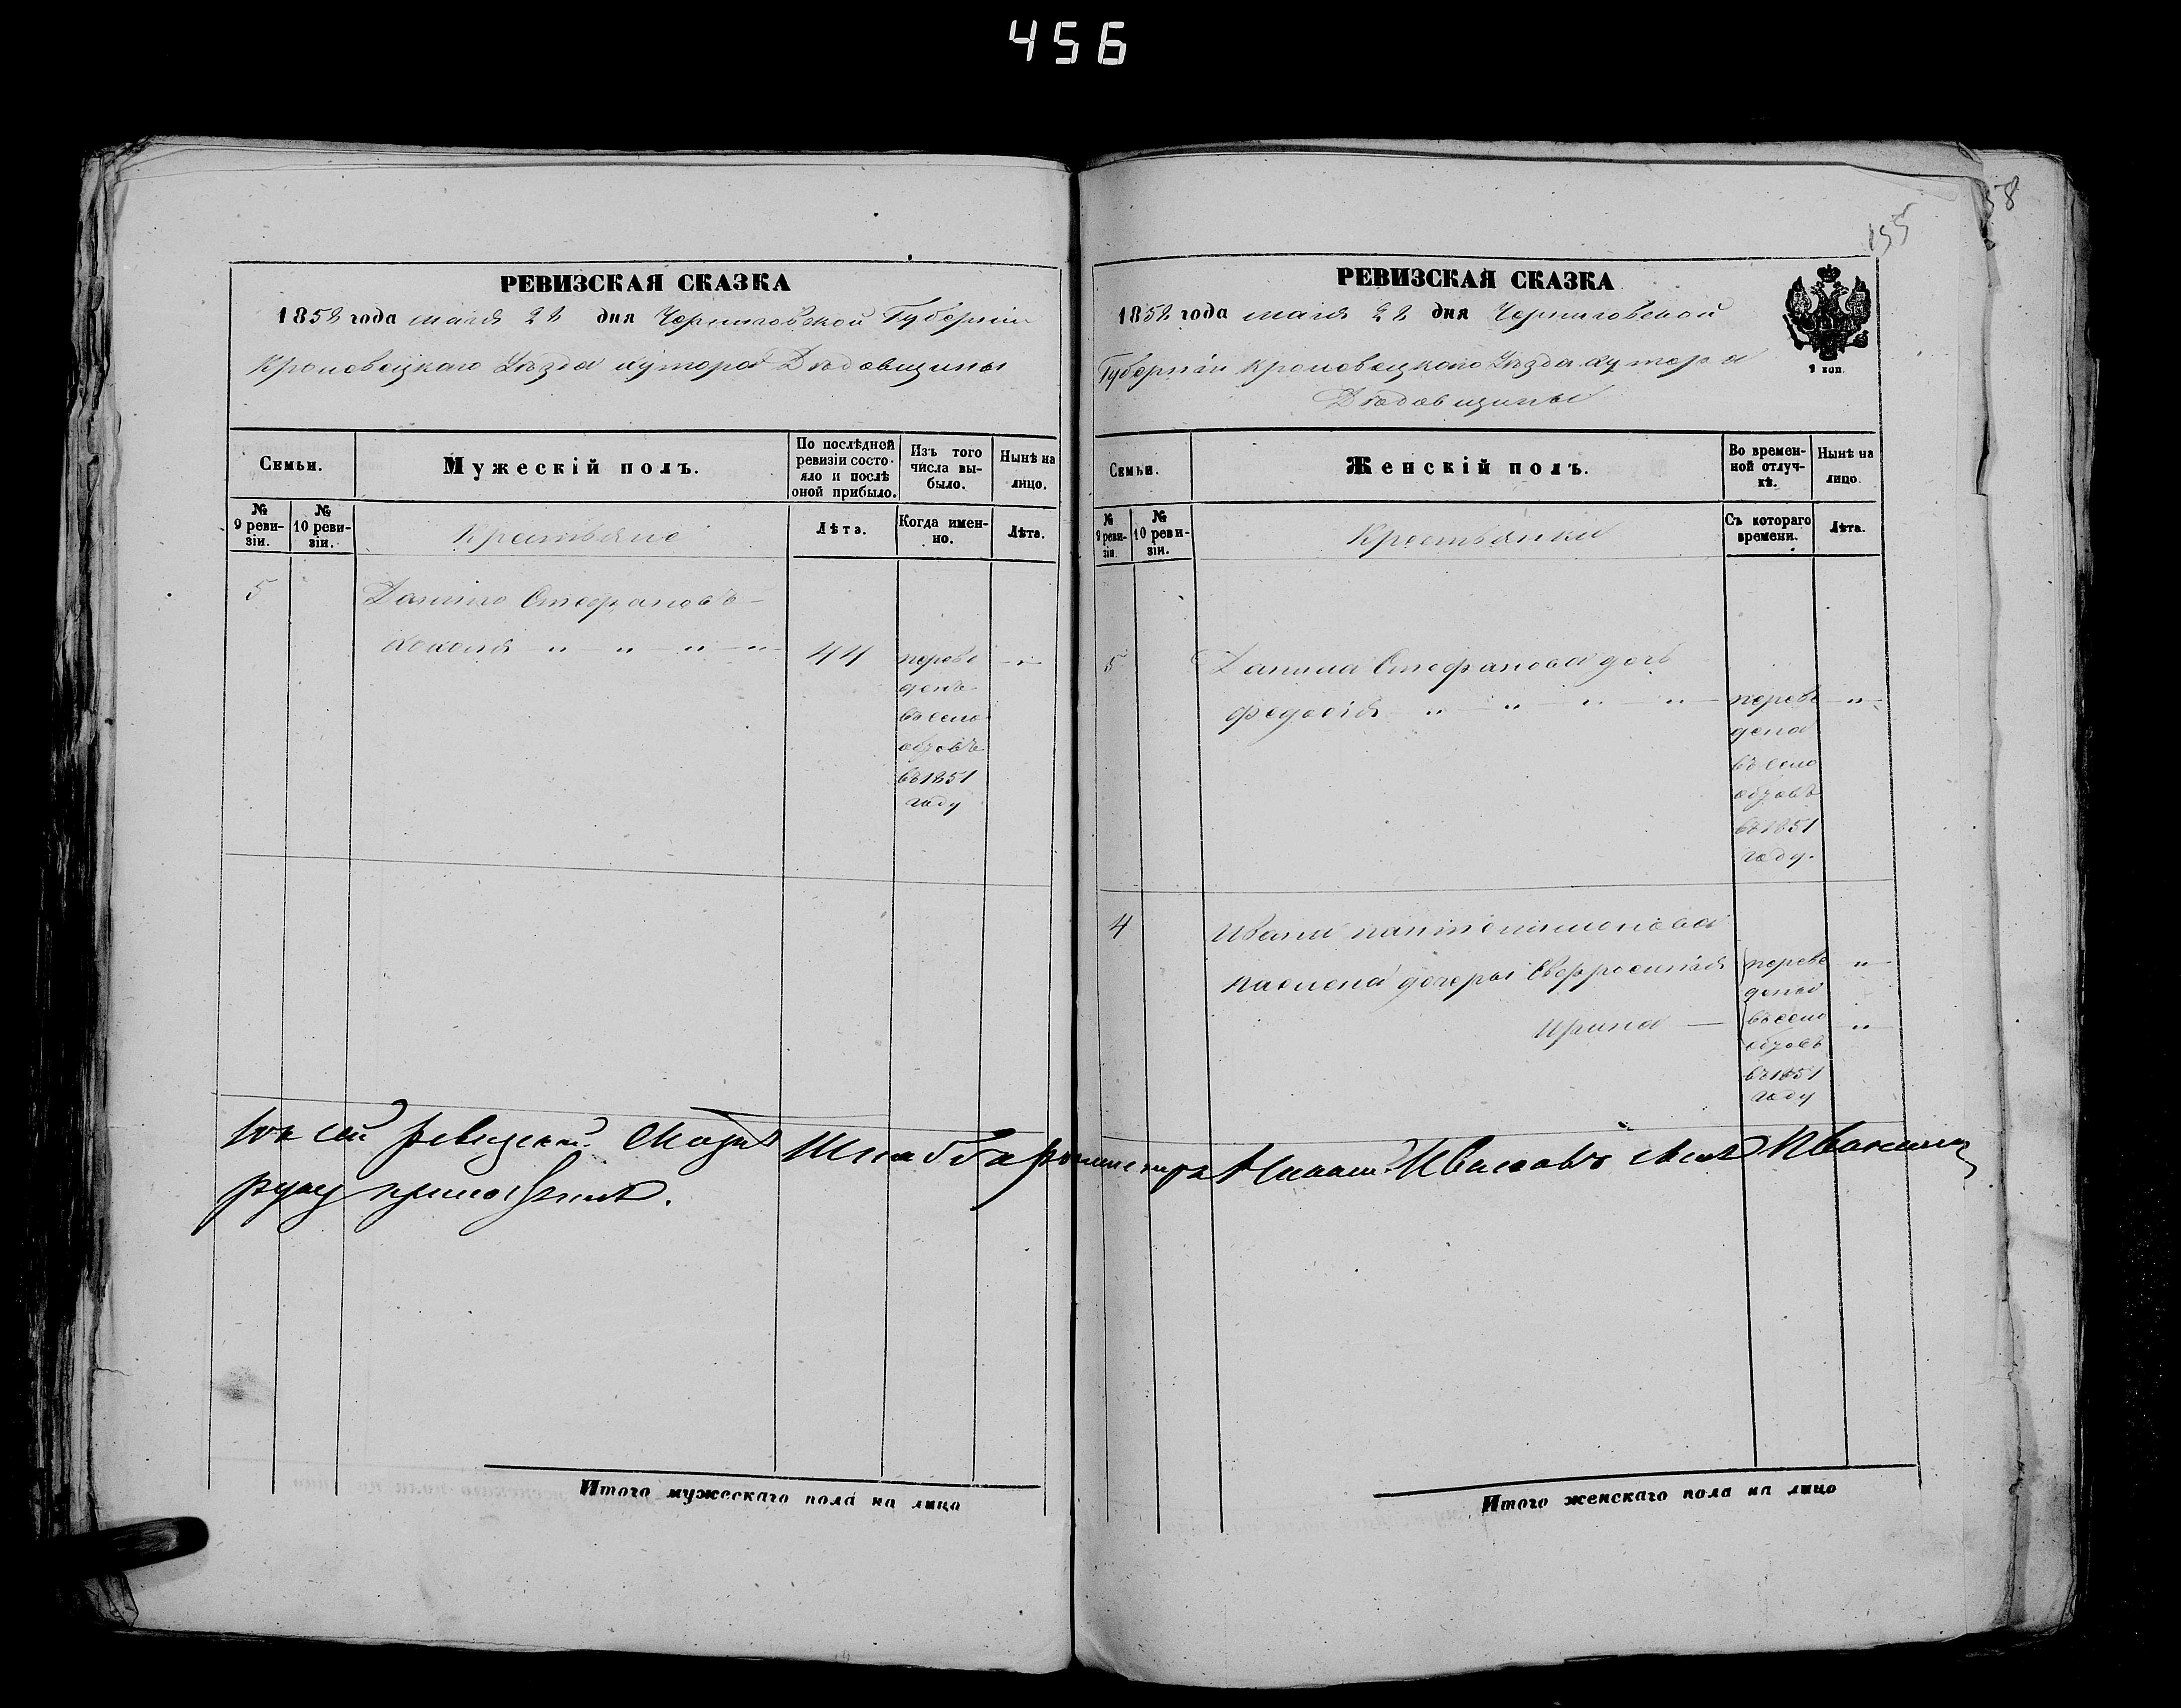 456
58
155
РЕВИЗСКАЯ СКАЗКА
1858 года маія 22 дня Черниговской Губерніи
Кролевецкаго Уѣзда хутора Дѣдовщины
Семьи.
Мужескій полъ.
По послѣдной ревизіи состояло и послѣ оной прибыло.
Изъ того числа выбыло.
Нынѣ на лицо.
№ 9 ревизіи.
№ 10 ревизіи.
Крестьяне
Лѣта.
Когда именно.
Лѣта.
5
Данило Стефановъ
44
переве
денъ
въ село
въ 1851
году
сей ревизской сказке
руку приложилъ.
Итого мужескаго пола на лицо
РЕВИЗСКАЯ СКАЗКА
1858 года маія 22 дня Черниговской
Губерніи Кролевецкаго Уѣзда хутора
Дѣдовщины
1 коп.
Семьи.
Женскій полъ.
Во временной отлучкѣ.
Нынѣ на лицо.
№ 9 ревизіи.
№ 10 ревизіи.
Крестьянки
Съ котораго времени.
Лѣта.
5
Данила Стефанова дочь
Федосія
переве
дена
въ село
въ 1851
году.
4
Ивана Пантелимонова
дочеры Евфросинія
переве
дены
Ирина
въ село
въ 1851
году
Итого женскаго пола на лицо